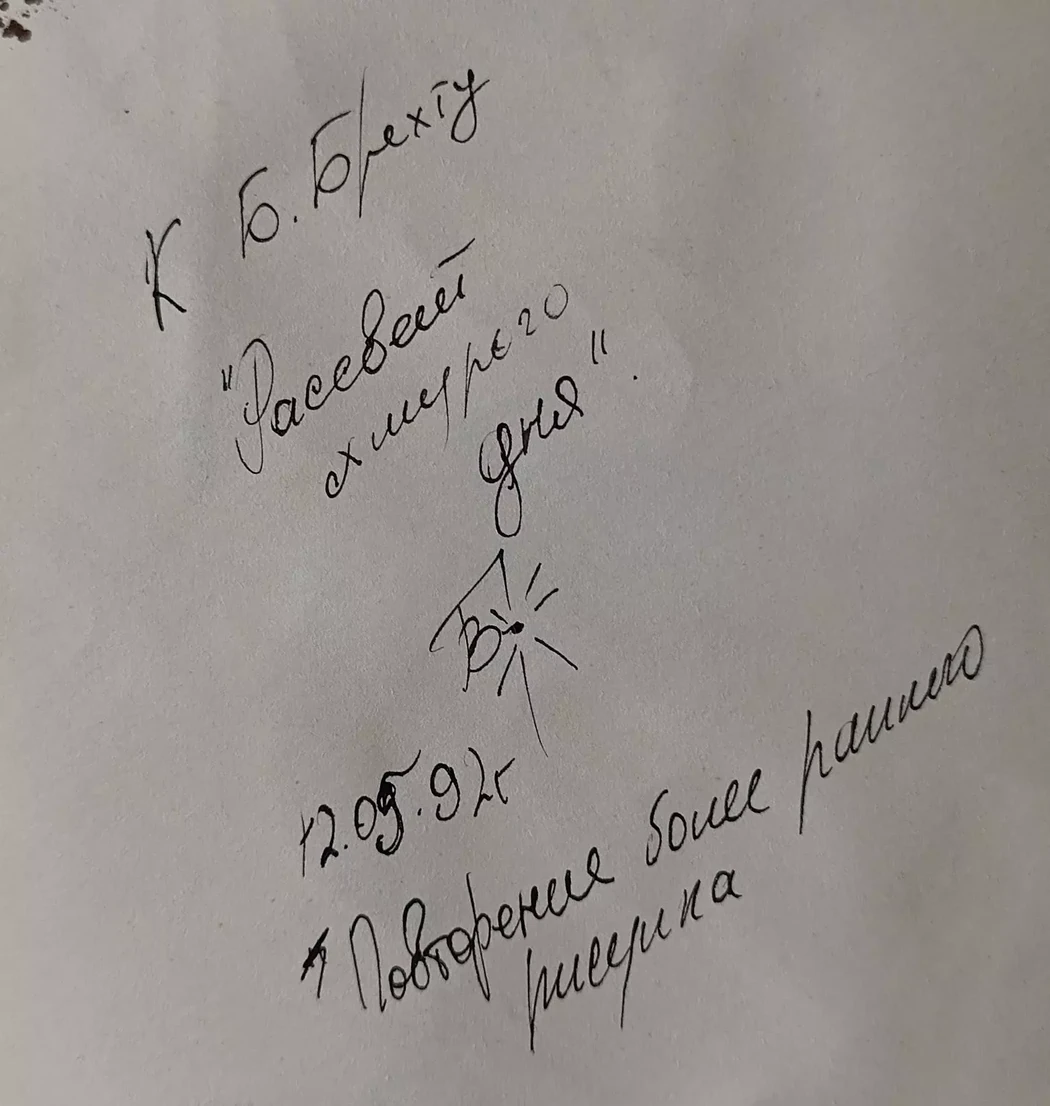 К Б. Брехту
"Рассвет
хмурого
дня".
12.05.92г
Повторение более раннего
рисунка